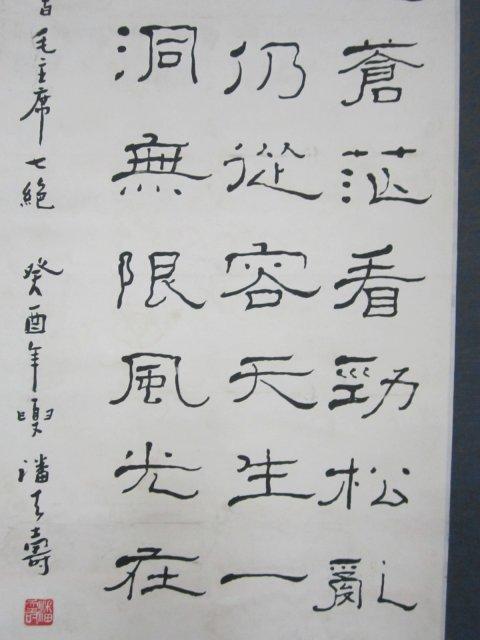 蒼茫看勁松亂
仍從容天生一
洞無限風光在
毛主席七絕 癸酉年 潘天壽